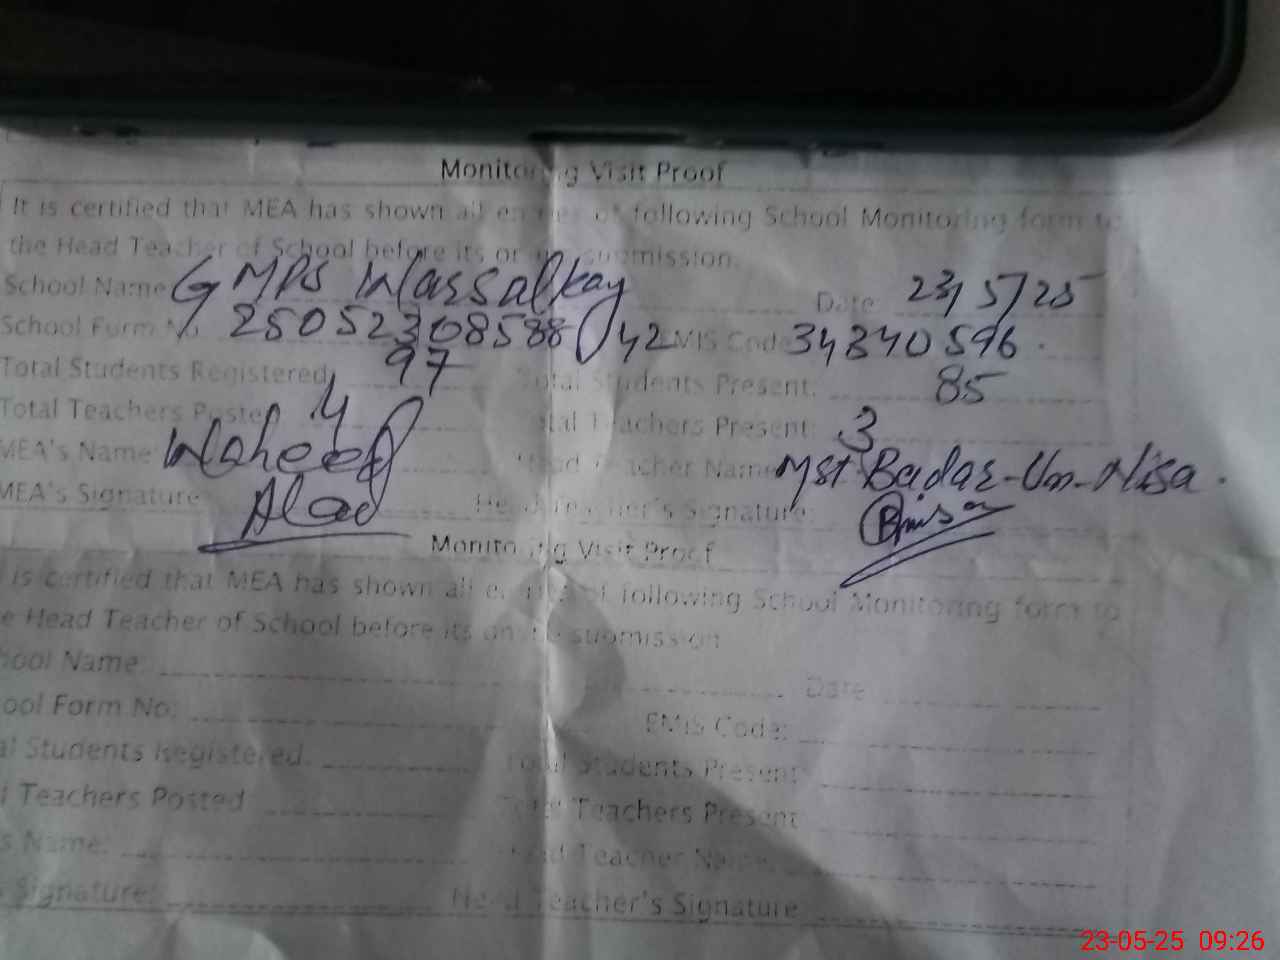 Monitoring Visit Proof
It is certified that MEA has shown all entries of following School Monitoring form to
the Head Teacher of School before its online submission.
School Name GMPS Wassalkay Date 23/5/25
School Form No 2505230858842 EMIS Code 34340596
Total Students Registered 97 Total Students Present: 85
Total Teachers Posted 4 Total Teachers Present: 3
MEA's Name: Waheed Head Teacher Name Mst Badar-Un-Nisa.
MEA's Signature Head Teacher's Signature:
Monitoring Visit Proof
is certified that MEA has shown all entries of following School Monitoring form to
e Head Teacher of School before its online submission
hool Name: Date
ool Form No: EMIS Code:
al Students Registered. Total Students Present:
l Teachers Posted Total Teachers Present
s Name: Head Teacher Name.
Signature: Head Teacher's Signature
23-05-25 09:26